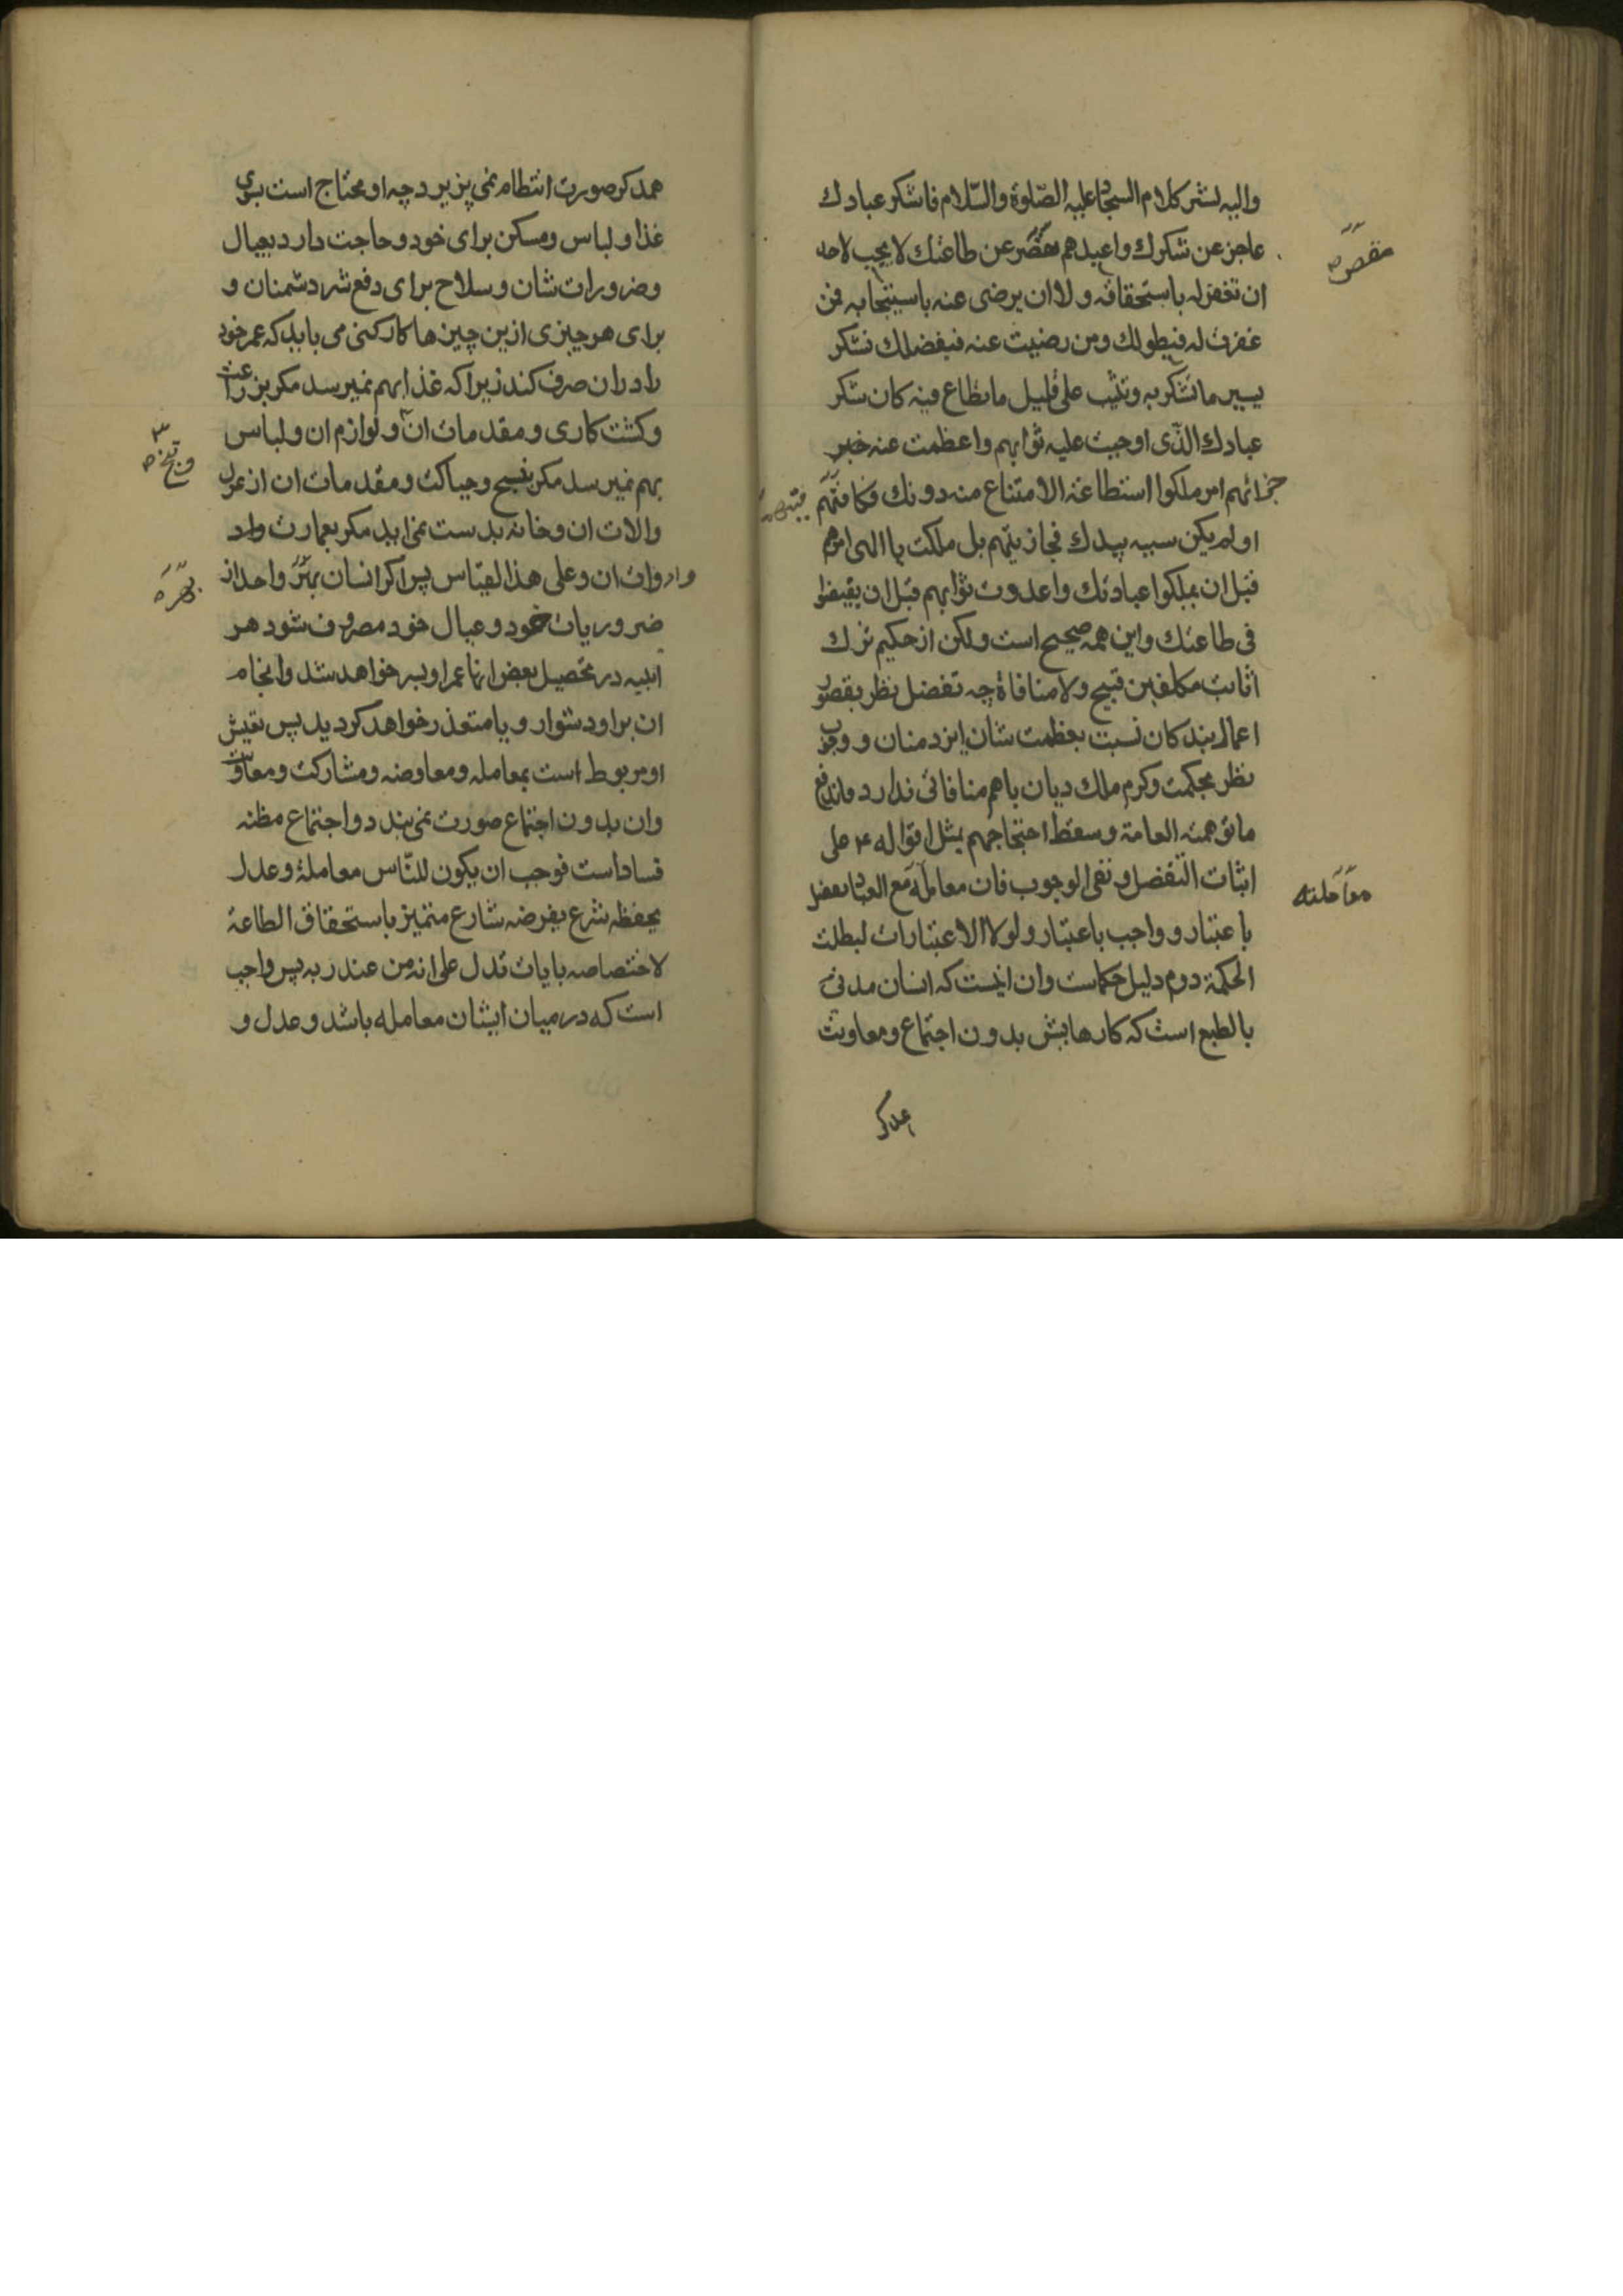 والیه یشیر کلام السجاد علیه الصّلوة والسّلام فاشکر عبادك
عاجز عن شکرك واعبدهم مقصر عن طاعتك لا یجب لاحد
مقصر
ان تغفر له باستحقاقه ولا ان یرضی عنه باستیجابه فمن
غفرت له فبطولك ومن رضیت عنه فبفضلك تشکر
یسیر ما تشکر به وتثیب علی قلیل ما تطاع فیه کان شکر
عبادك الذّی اوجبت علیه ثوابهم واعظمت عنه
جزائهم امر ملکوا استطاعة الامتناع منه دونك فکافیتهم
اولم یکن سببه بیدك فجازیتهم بل ملکت یا الهی امرهم
قبل ان یملکوا عبادتك واعددت ثوابهم قبل ان یفیضوا
فی طاعتك واین همه صحیح است ولکن از حکیم ترك
اثابت مکلفین قبیح ولا منافاة چه تفضل نظر بقصور
اعمال بندکان نسبت بعظمت شان ایزد منان و وجوب
نظر بحکمت وکرم ملك دیان باهم منافاتی ندارد فاندفع
ما توهمته العامة وسقط احتجاجهم بمثل اقواله ع علی
اثبات التفضل ونفی الوجوب فان معامله مع العباد تفضل
معاملته
باعتبار و واجب باعتبار ولولا الاعتبارات لبطلت
الحکمة دوم دلیل حکماست وان اینست که انسان مدنی
بالطبع است که کارهایش بدون اجتماع ومعاونت
همدکر
همدکر صورت انتظام نمی پزیرد چه او محتاج است برای
غذا و لباس ومسکن برای خود و حاجت دارد بعیال
وضرورات شان وسلاح برای دفع شر دشمنان و
برای هر چیزی ازین چیزها کارکنی می باید که عمر خود
را دران صرف کند زیرا که غذا بهم نمیرسد مکر بزراعت
وکشت کاری ومقدمات ان ولوازم ان ولباس
بهم نمیرسد مکر بنسج وحیاکت ومقدمات ان از غزل
والات ان وخانه بدست نمی اید مکر بعمارت
وادوات ان وعلی هذا القیاس پس اکر انسان بهر واحد از
بهر
ضروریات خود وعیال خود مصروف شود هر
اینیه در تحصیل بعض انها عمر او بسر خواهد شد وانجام
ان بر او دشوار ویا متعذر خواهد کردید پس تعیش
او مربوط است بمعامله ومعاوضه ومشارکت ومعاونت
وان بدون اجتماع صورت نمی بندد واجتماع مظنه
فساد است فوجب ان یکون للنّاس معاملة وعدل
یحفظه شرع یفرضه شارع متمیز باستحقاق الطاعة
لاختصاصه بایات تدل علی انه من عند ربه پس واجب
است که در میان ایشان معامله باشد وعدل و